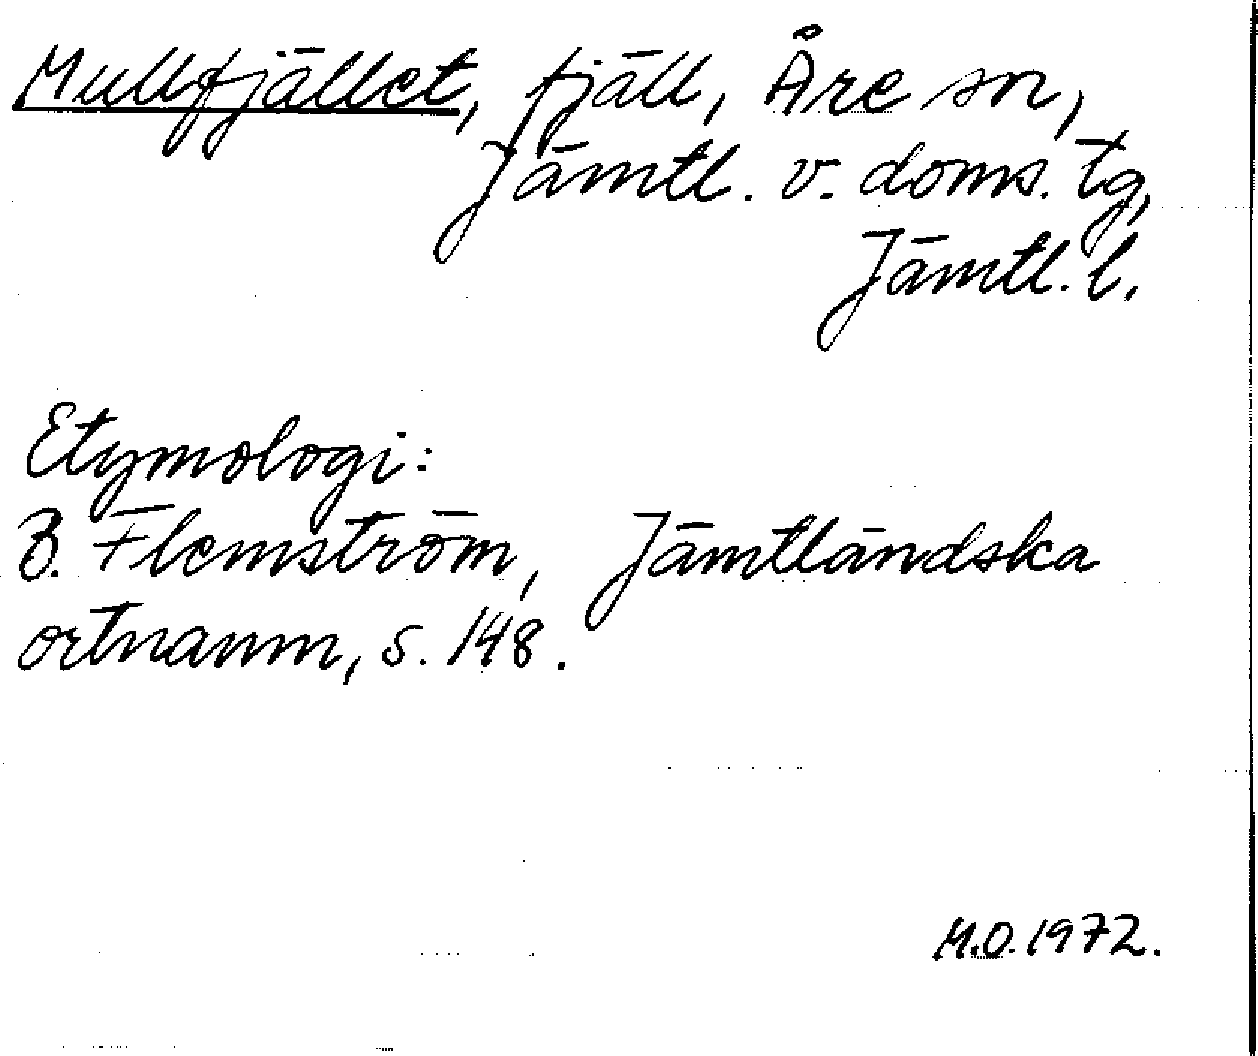 Mullfjället, fjäll, Åre sn,
Jämtl. v. doms. tg,
Jämtl. l.
Etymologi:
B. Flemström, Jämtländska
ortnamn, s. 148.
M.O. 1972.